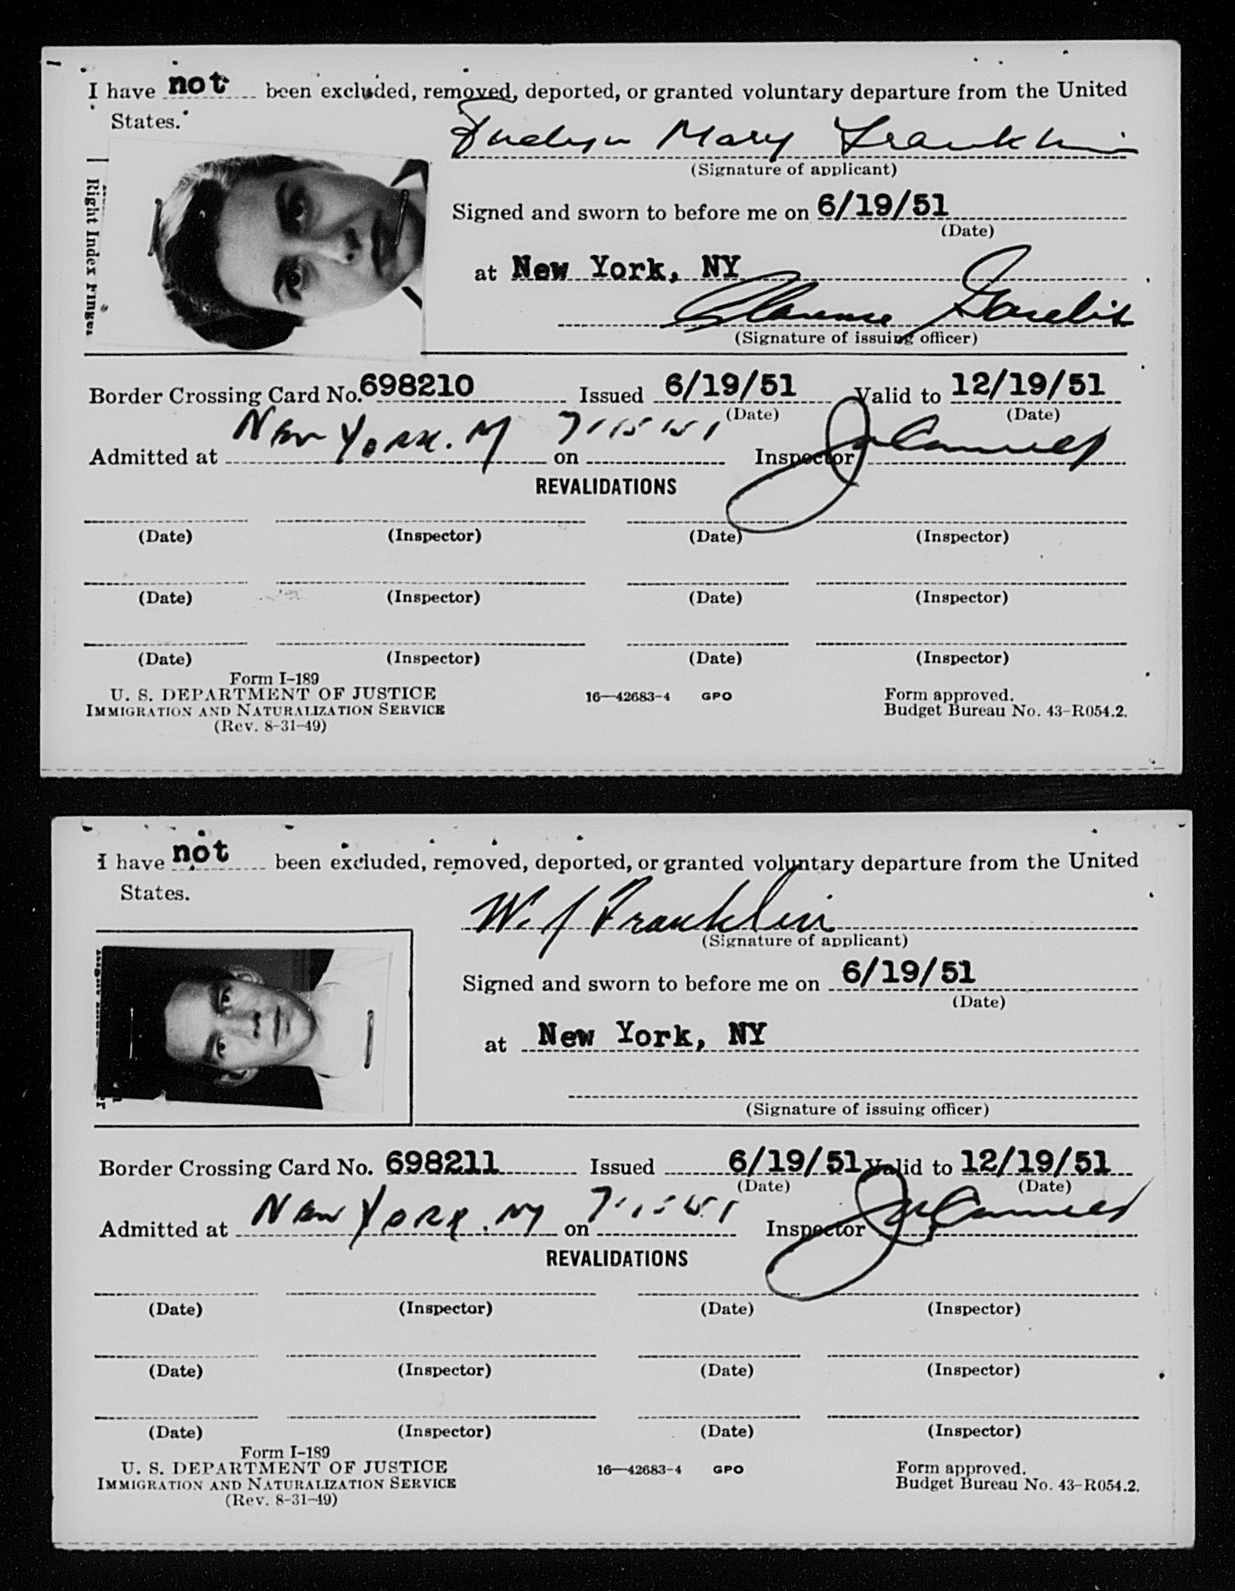 I have not been excluded, removed, deported, or granted voluntary departure from the United
States.
Evelyn Mary Franklin
(Signature of applicant)
Right Index Finger
Signed and sworn to before me on 6/19/51
(Date)
at New York, NY
Clarence
(Signature of issuing officer)
Border Crossing Card No. 698210 Issued 6/19/51 Valid to 12/19/51
(Date) (Date)
Admitted at New York. NY on 7/15/51 Inspector
REVALIDATIONS
(Date) (Inspector) (Date) (Inspector)
(Date) (Inspector) (Date) (Inspector)
(Date) (Inspector) (Date) (Inspector)
Form I-189
U. S. DEPARTMENT OF JUSTICE 16—42683-4 GPO Form approved.
IMMIGRATION AND NATURALIZATION SERVICE Budget Bureau No. 43-R054.2.
(Rev. 8-31-49)
I have not been excluded, removed, deported, or granted voluntary departure from the United
States.
W. J Franklin
(Signature of applicant)
Signed and sworn to before me on 6/19/51
(Date)
at New York, NY
(Signature of issuing officer)
Border Crossing Card No. 698211 Issued 6/19/51 Valid to 12/19/51
(Date) (Date)
Admitted at New York, NY on 7/15/51 Inspector
REVALIDATIONS
(Date) (Inspector) (Date) (Inspector)
(Date) (Inspector) (Date) (Inspector)
(Date) (Inspector) (Date) (Inspector)
Form I-189
U. S. DEPARTMENT OF JUSTICE 16—42683-4 GPO Form approved.
IMMIGRATION AND NATURALIZATION SERVICE Budget Bureau No. 43-R054.2.
(Rev. 8-31-49)